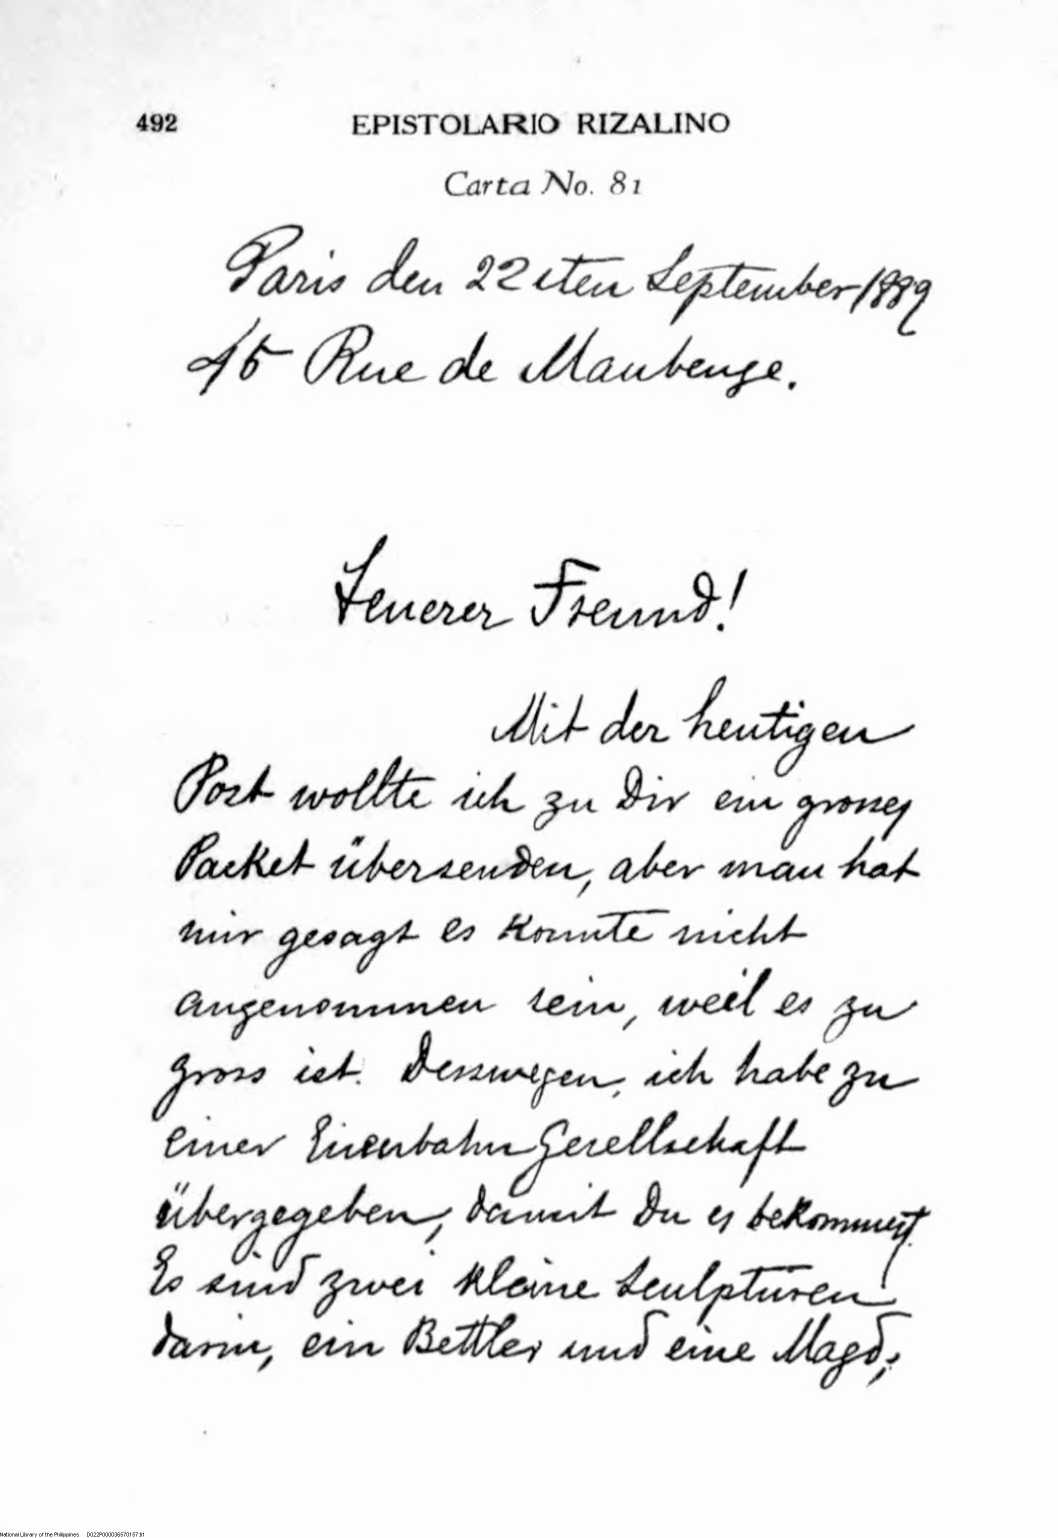 492 EPISTOLARIO RIZALINO
Carta No. 81
Paris den 22sten September 1889
45 Rue de Maubeuge.
Teuerer Freund!
Mit der heutigen
Post wollte ich zu Dir ein grosses
Packet übersenden, aber man hat
mir gesagt es konnte nicht
angenommen sein, weil es zu
gross ist. Desswegen, ich habe zu
einer Eisenbahn Gesellschaft
übergegeben, damit Du es bekommest.
Es sind zwei kleine Sculpturen
darin, ein Bettler und eine Magd;
National Library of the Philippines